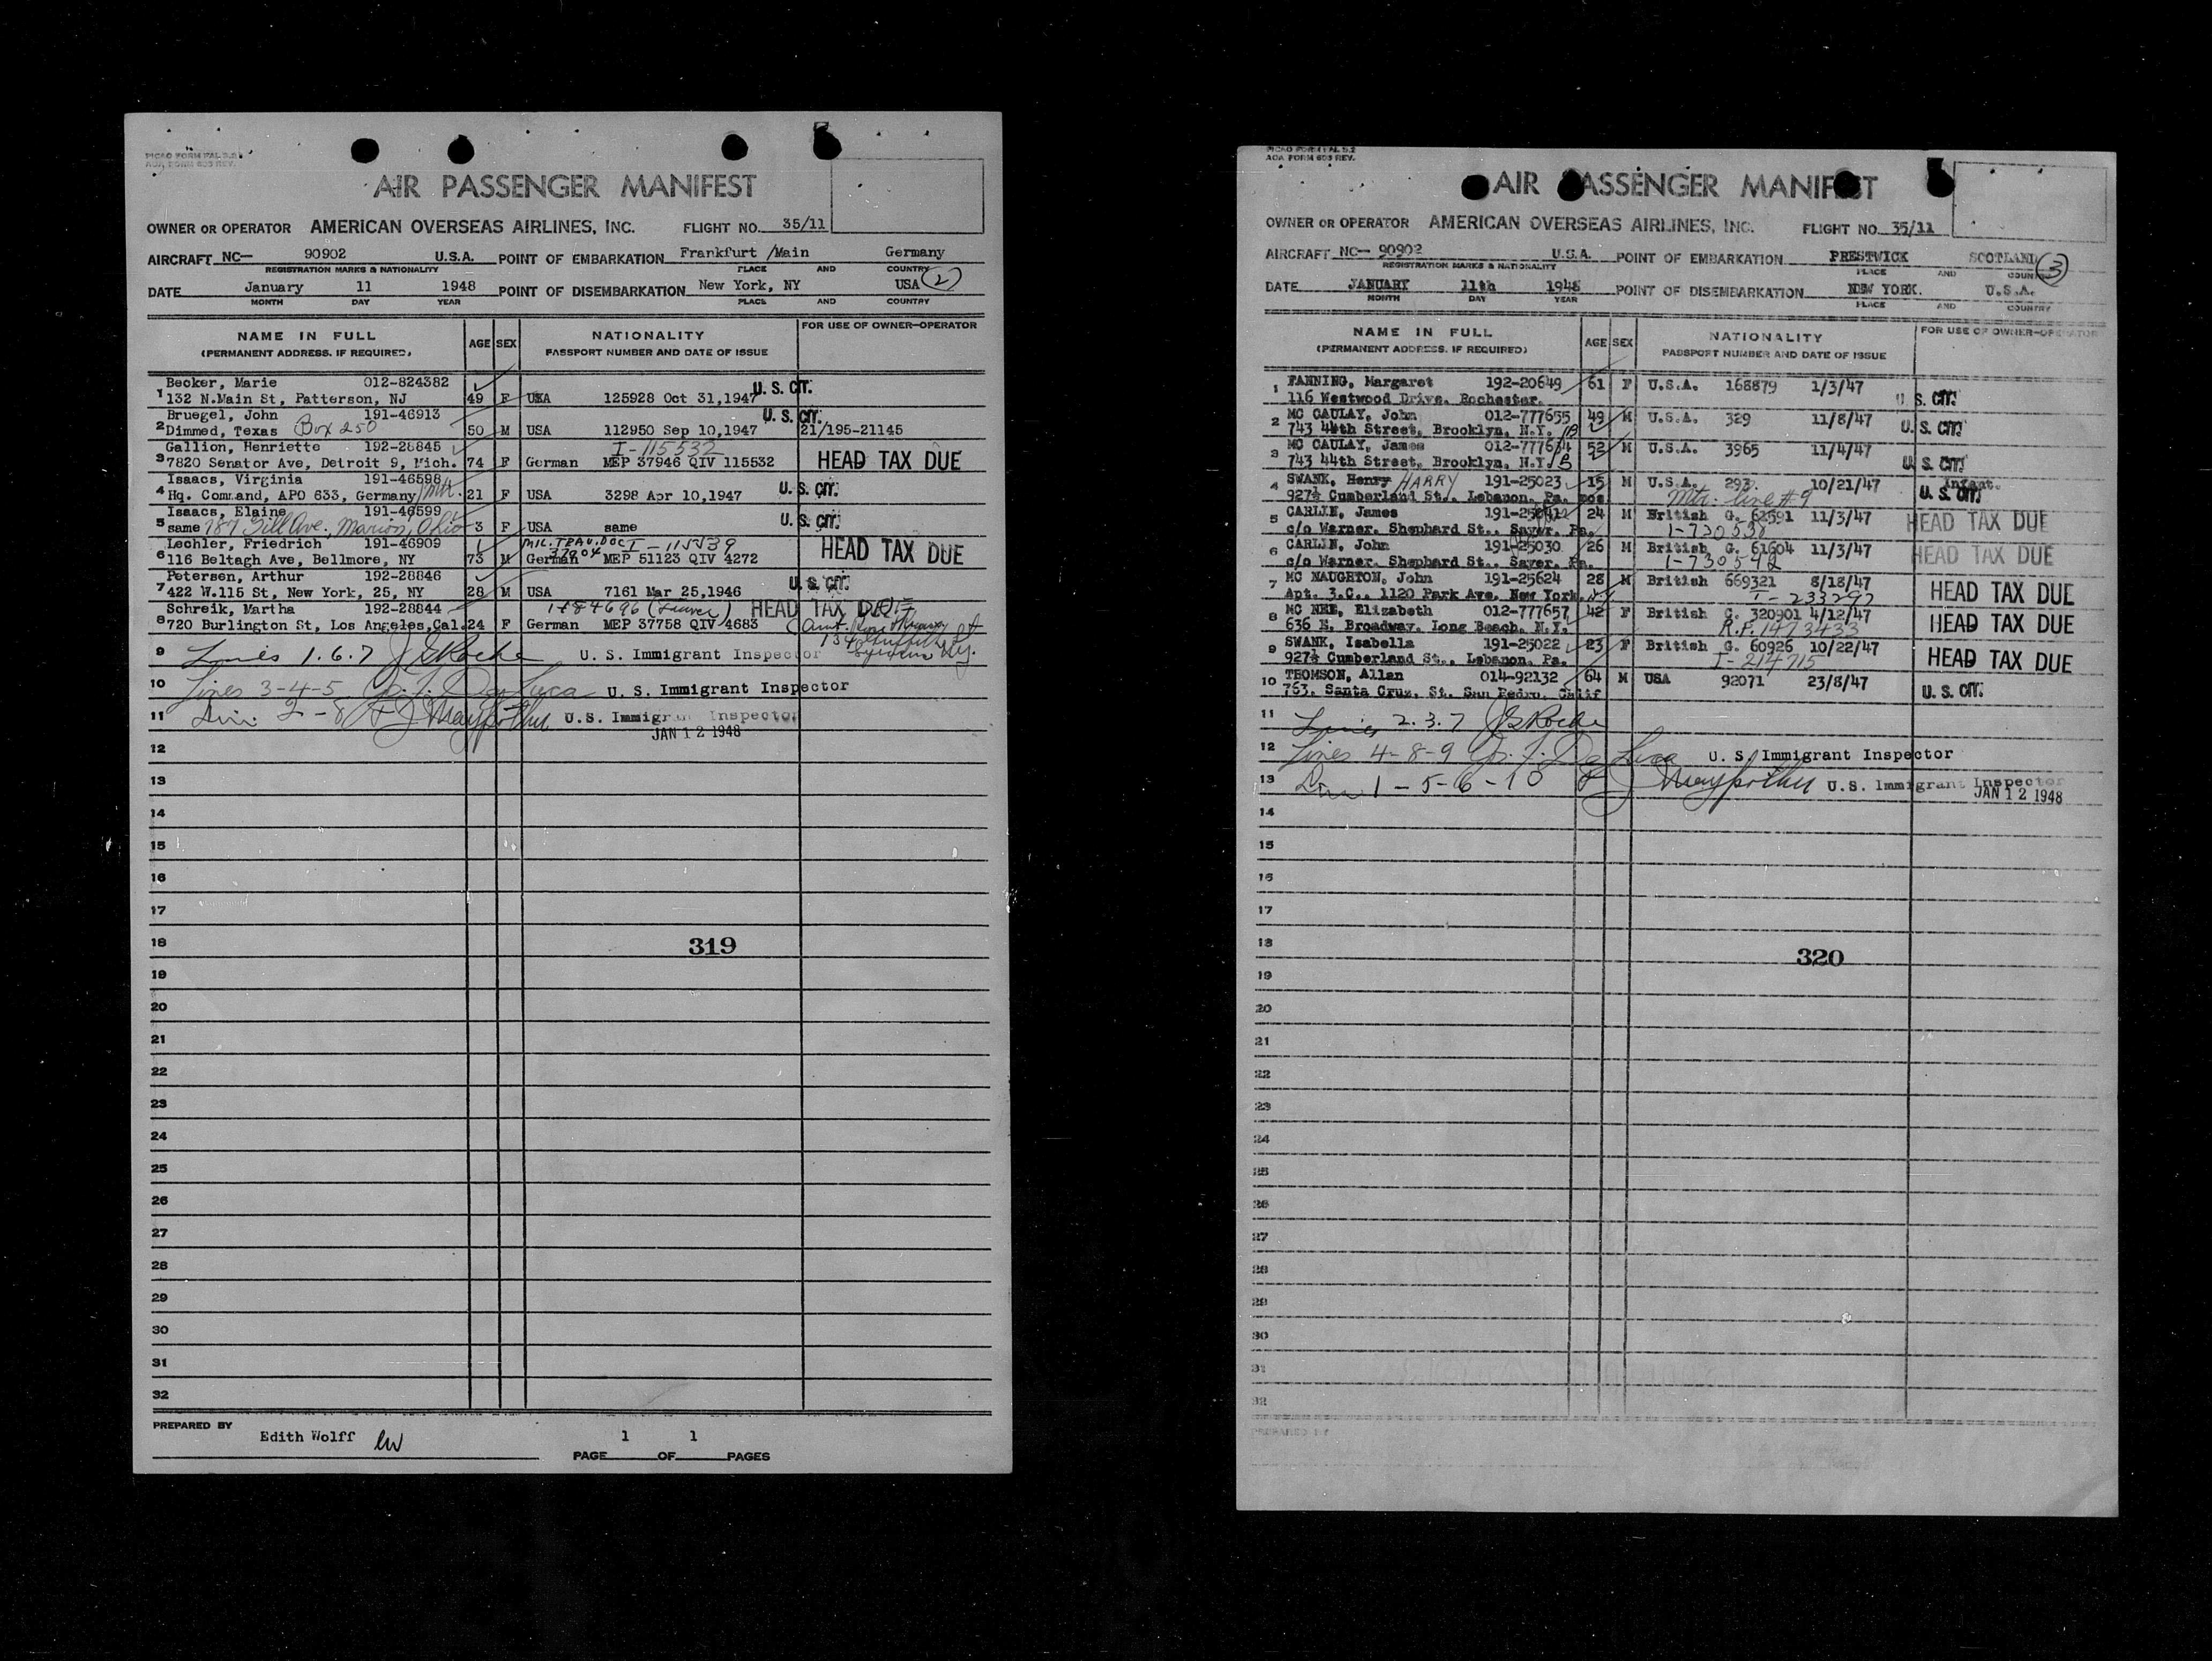 PICAO FORM FAL 3.2
AOA FORM 603 REV.
AIR PASSENGER MANIFEST
OWNER OR OPERATOR AMERICAN OVERSEAS AIRLINES, INC. FLIGHT NO. 35/11
AIRCRAFT NC— 90902 U.S.A. POINT OF EMBARKATION Frankfurt /Main Germany
REGISTRATION MARKS & NATIONALITY PLACE AND COUNTRY
DATE January 11 1948 POINT OF DISEMBARKATION New York, NY USA (2)
MONTH DAY YEAR PLACE AND COUNTRY
NAME IN FULL AGE SEX NATIONALITY FOR USE OF OWNER—OPERATOR
(PERMANENT ADDRESS, IF REQUIRED) PASSPORT NUMBER AND DATE OF ISSUE
Becker, Marie 012-824382 U. S. CIT.
1 132 N.Main St, Patterson, NJ 49 F USA 125928 Oct 31,1947
Bruegel, John 191-46913 U. S. CIT.
2 Dimmed, Texas Box 250 50 M USA 112950 Sep 10,1947 21/195-21145
Gallion, Henriette 192-28845 I-115532
3 7820 Senator Ave, Detroit 9, Mich. 74 F German MEP 37946 QIV 115532 HEAD TAX DUE
Isaacs, Virginia 191-46598
4 Hq. Command, APO 633, Germany Mtr. 21 F USA 3298 Apr 10,1947 U. S. CIT.
Isaacs, Elaine 191-46599
5 same 187 Gill Ave; Marion, Ohio 3 F USA same U. S. CIT.
Lechler, Friedrich 191-46909 MIL.TRAV.DOC I-115539
37904
6 116 Beltagh Ave, Bellmore, NY 73 M German MEP 51123 QIV 4272 HEAD TAX DUE
Petersen, Arthur 192-28846
7 422 W.115 St, New York, 25, NY 28 M USA 7161 Mar 25,1946 U. S. CIT.
Schreik, Martha 192-28844 HEAD TAX DUE
8 720 Burlington St, Los Angeles,Cal. 24 F German MEP 37758 QIV 4683
9 Lines 1.6.7 J G Roche U. S. Immigrant Inspector
10 Lines 3-4-5 Jos. F. De Luca U. S. Immigrant Inspector
11 Lin. 2-8 U.S. Immigrant Inspector
JAN 12 1948
12
13
14
15
16
17
18 319
19
20
21
22
23
24
25
26
27
28
29
30
31
32
PREPARED BY Edith Wolff EW
PAGE 1 OF 1 PAGES
PICAO FORM FAL 3.2
AOA FORM 603 REV.
AIR PASSENGER MANIFEST
OWNER OR OPERATOR AMERICAN OVERSEAS AIRLINES, INC. FLIGHT NO. 35/11
AIRCRAFT NC— 90902 U.S.A. POINT OF EMBARKATION PRESTWICK SCOTLAND (3)
REGISTRATION MARKS & NATIONALITY PLACE AND COUNTRY
DATE JANUARY 11th 1948 POINT OF DISEMBARKATION NEW YORK. U.S.A.
MONTH DAY YEAR PLACE AND COUNTRY
NAME IN FULL AGE SEX NATIONALITY FOR USE OF OWNER-OPERATOR
(PERMANENT ADDRESS, IF REQUIRED) PASSPORT NUMBER AND DATE OF ISSUE
1 FANNING, Margaret 192-20649 61 F U.S.A. 168879 1/3/47
116 Westwood Drive, Rochester. U. S. CIT.
2 MC CAULAY, John 012-777655 49 M U.S.A. 329 11/8/47
743 44th Street, Brooklyn, N.Y. U. S. CIT.
3 MC CAULAY, James 012-777654 52 M U.S.A. 3965 11/4/47
743 44th Street, Brooklyn, N.Y. U. S. CIT.
4 SWANK, Henry HARRY 191-25023 15 M U.S.A. 293. 10/21/47 Infant.
927½ Cumberland St., Lebanon, Pa. mos Mtr. line #9 U. S. CIT.
5 CARLIN, James 24 M British G. 62591 11/3/47 HEAD TAX DUE
c/o Warner, Shephard St., Sayer, Pa. I-730538
6 CARLIN, John 191-25030 26 M British G. 61604 11/3/47 HEAD TAX DUE
c/o Warner, Shephard St., Sayer, Pa. I-730542
7 MC NAUGHTON, John 191-25624 28 M British 669321 8/18/47 HEAD TAX DUE
Apt. 3.C., 1120 Park Ave, New York. N.Y. I-233292
8 MC NEE, Elizabeth 012-777657 42 F British C. 320901 4/12/47 HEAD TAX DUE
636 E. Broadway, Long Beach, N.Y. R.P. 1473433
9 SWANK, Isabella 191-25022 23 F British G. 60926 10/22/47 HEAD TAX DUE
927½ Cumberland St., Lebanon, Pa. I-214715
10 THOMSON, Allan 014-92132 64 M USA 92071 23/8/47
763, Santa Cruz, St. San Pedro, Calif U. S. CIT.
11 Lines 2.3.7 J G Roche
12 Lines 4-8-9 Jos. F. De Luca U. S. Immigrant Inspector
13 Lin 1-5-6-10 U.S. Immigrant Inspector
JAN 12 1948
14
15
16
17
18 320
19
20
21
22
23
24
25
26
27
28
29
30
31
32
PREPARED BY